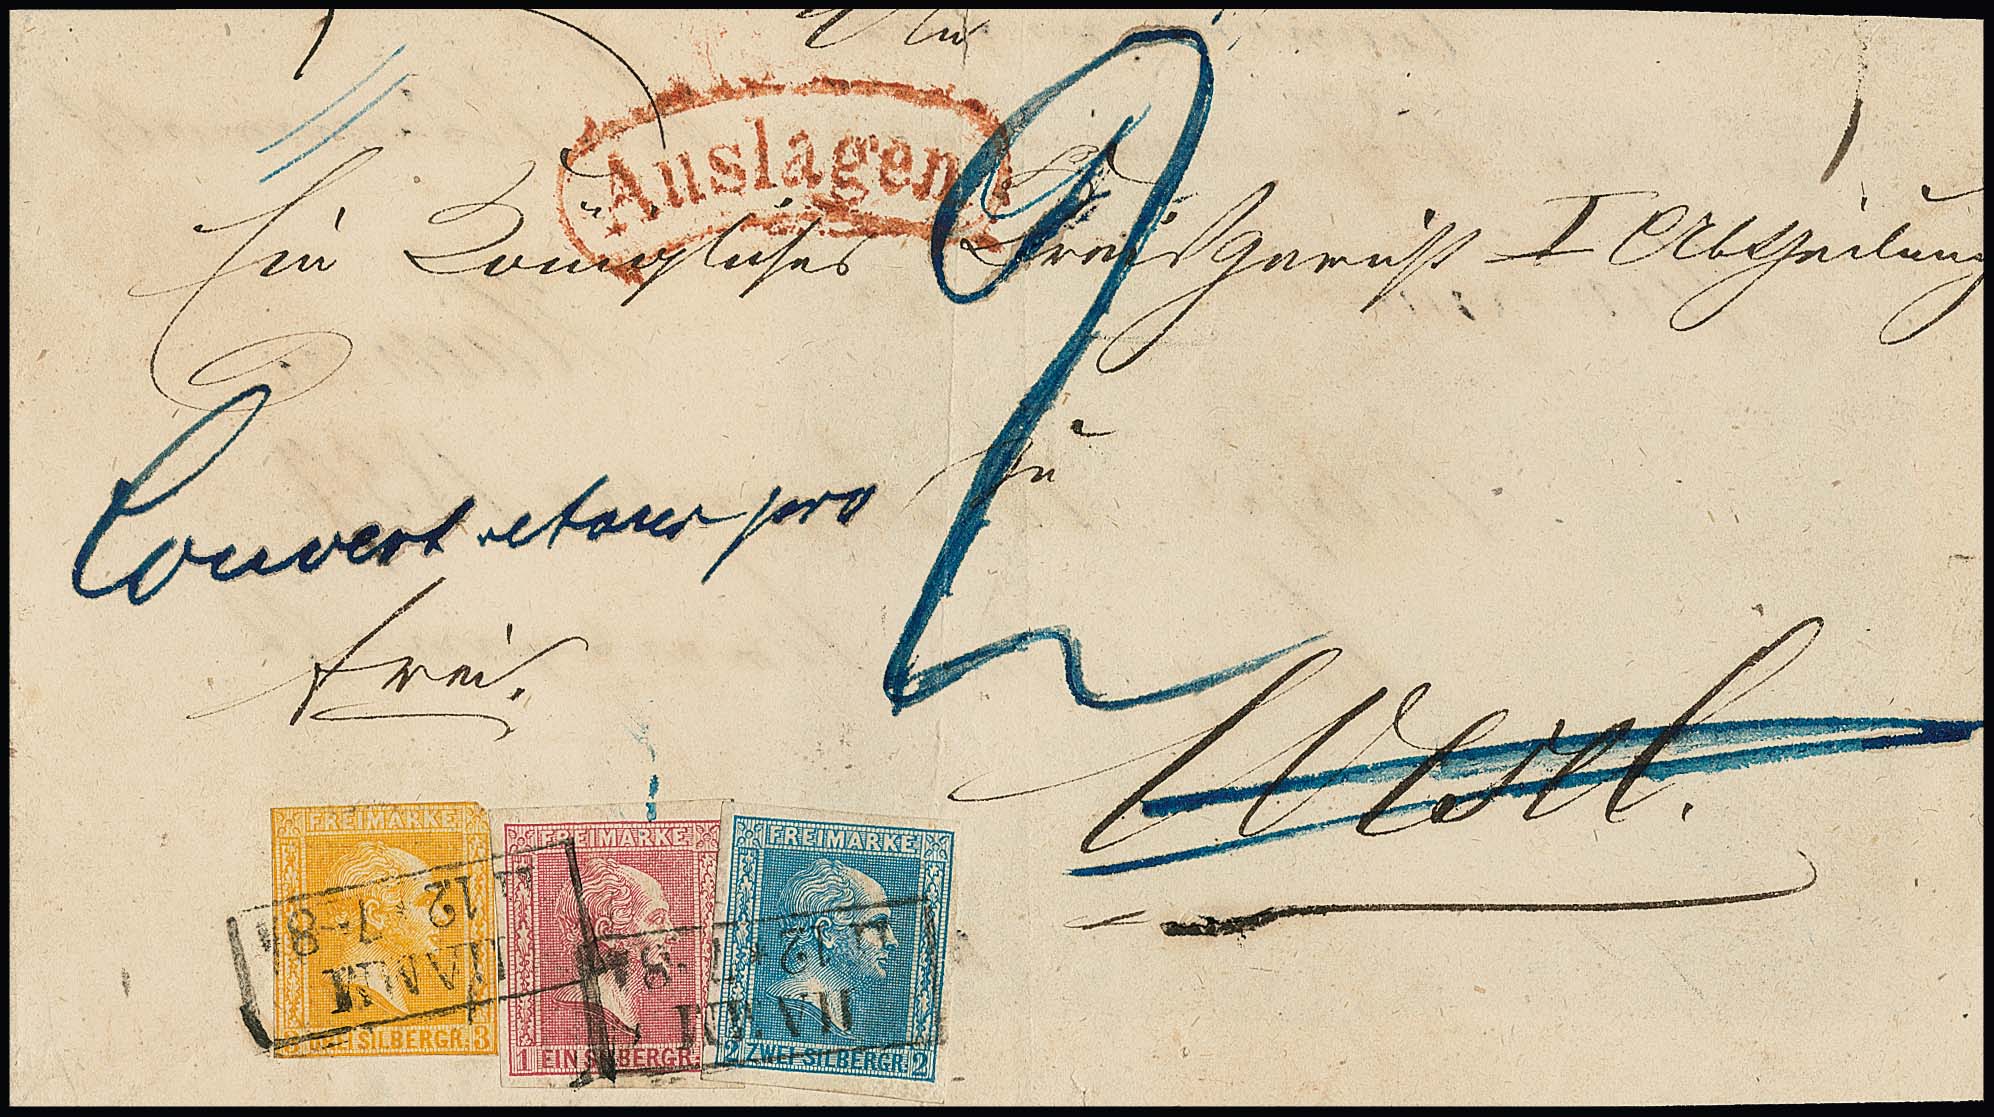 An
Auslagen
Ein Königliches Kreisgericht I Abtheilung
zu
Couvert retour pro
frei.
2
Wesel.
FREIMARKE
3 DREI SILBERGR. 3
FREIMARKE
1 EIN SILBERGR.
FREIMARKE
2 ZWEI SILBERGR. 2
12 * 7-8
12